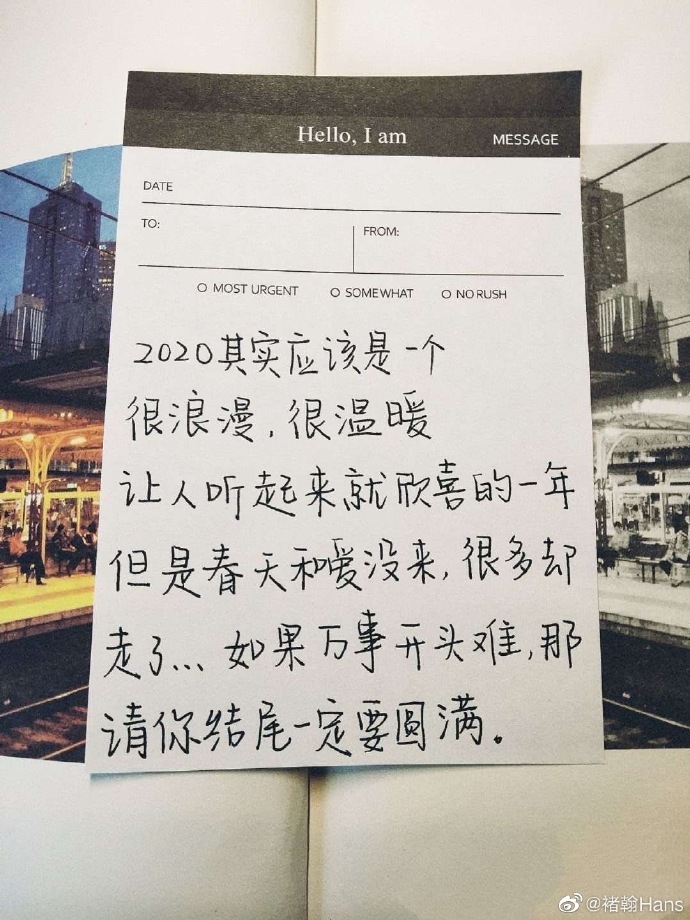 Hello, I am
MESSAGE
DATE
TO:
FROM:
MOST URGENT
SOMEWHAT
NO RUSH
2020其实应该是一个
很浪漫，很温暖
让人听起来就欣喜的一年
但是春天和爱没来，很多却
走了...如果万事开头难，那
请你结尾一定要圆满。
@褚翰Hans